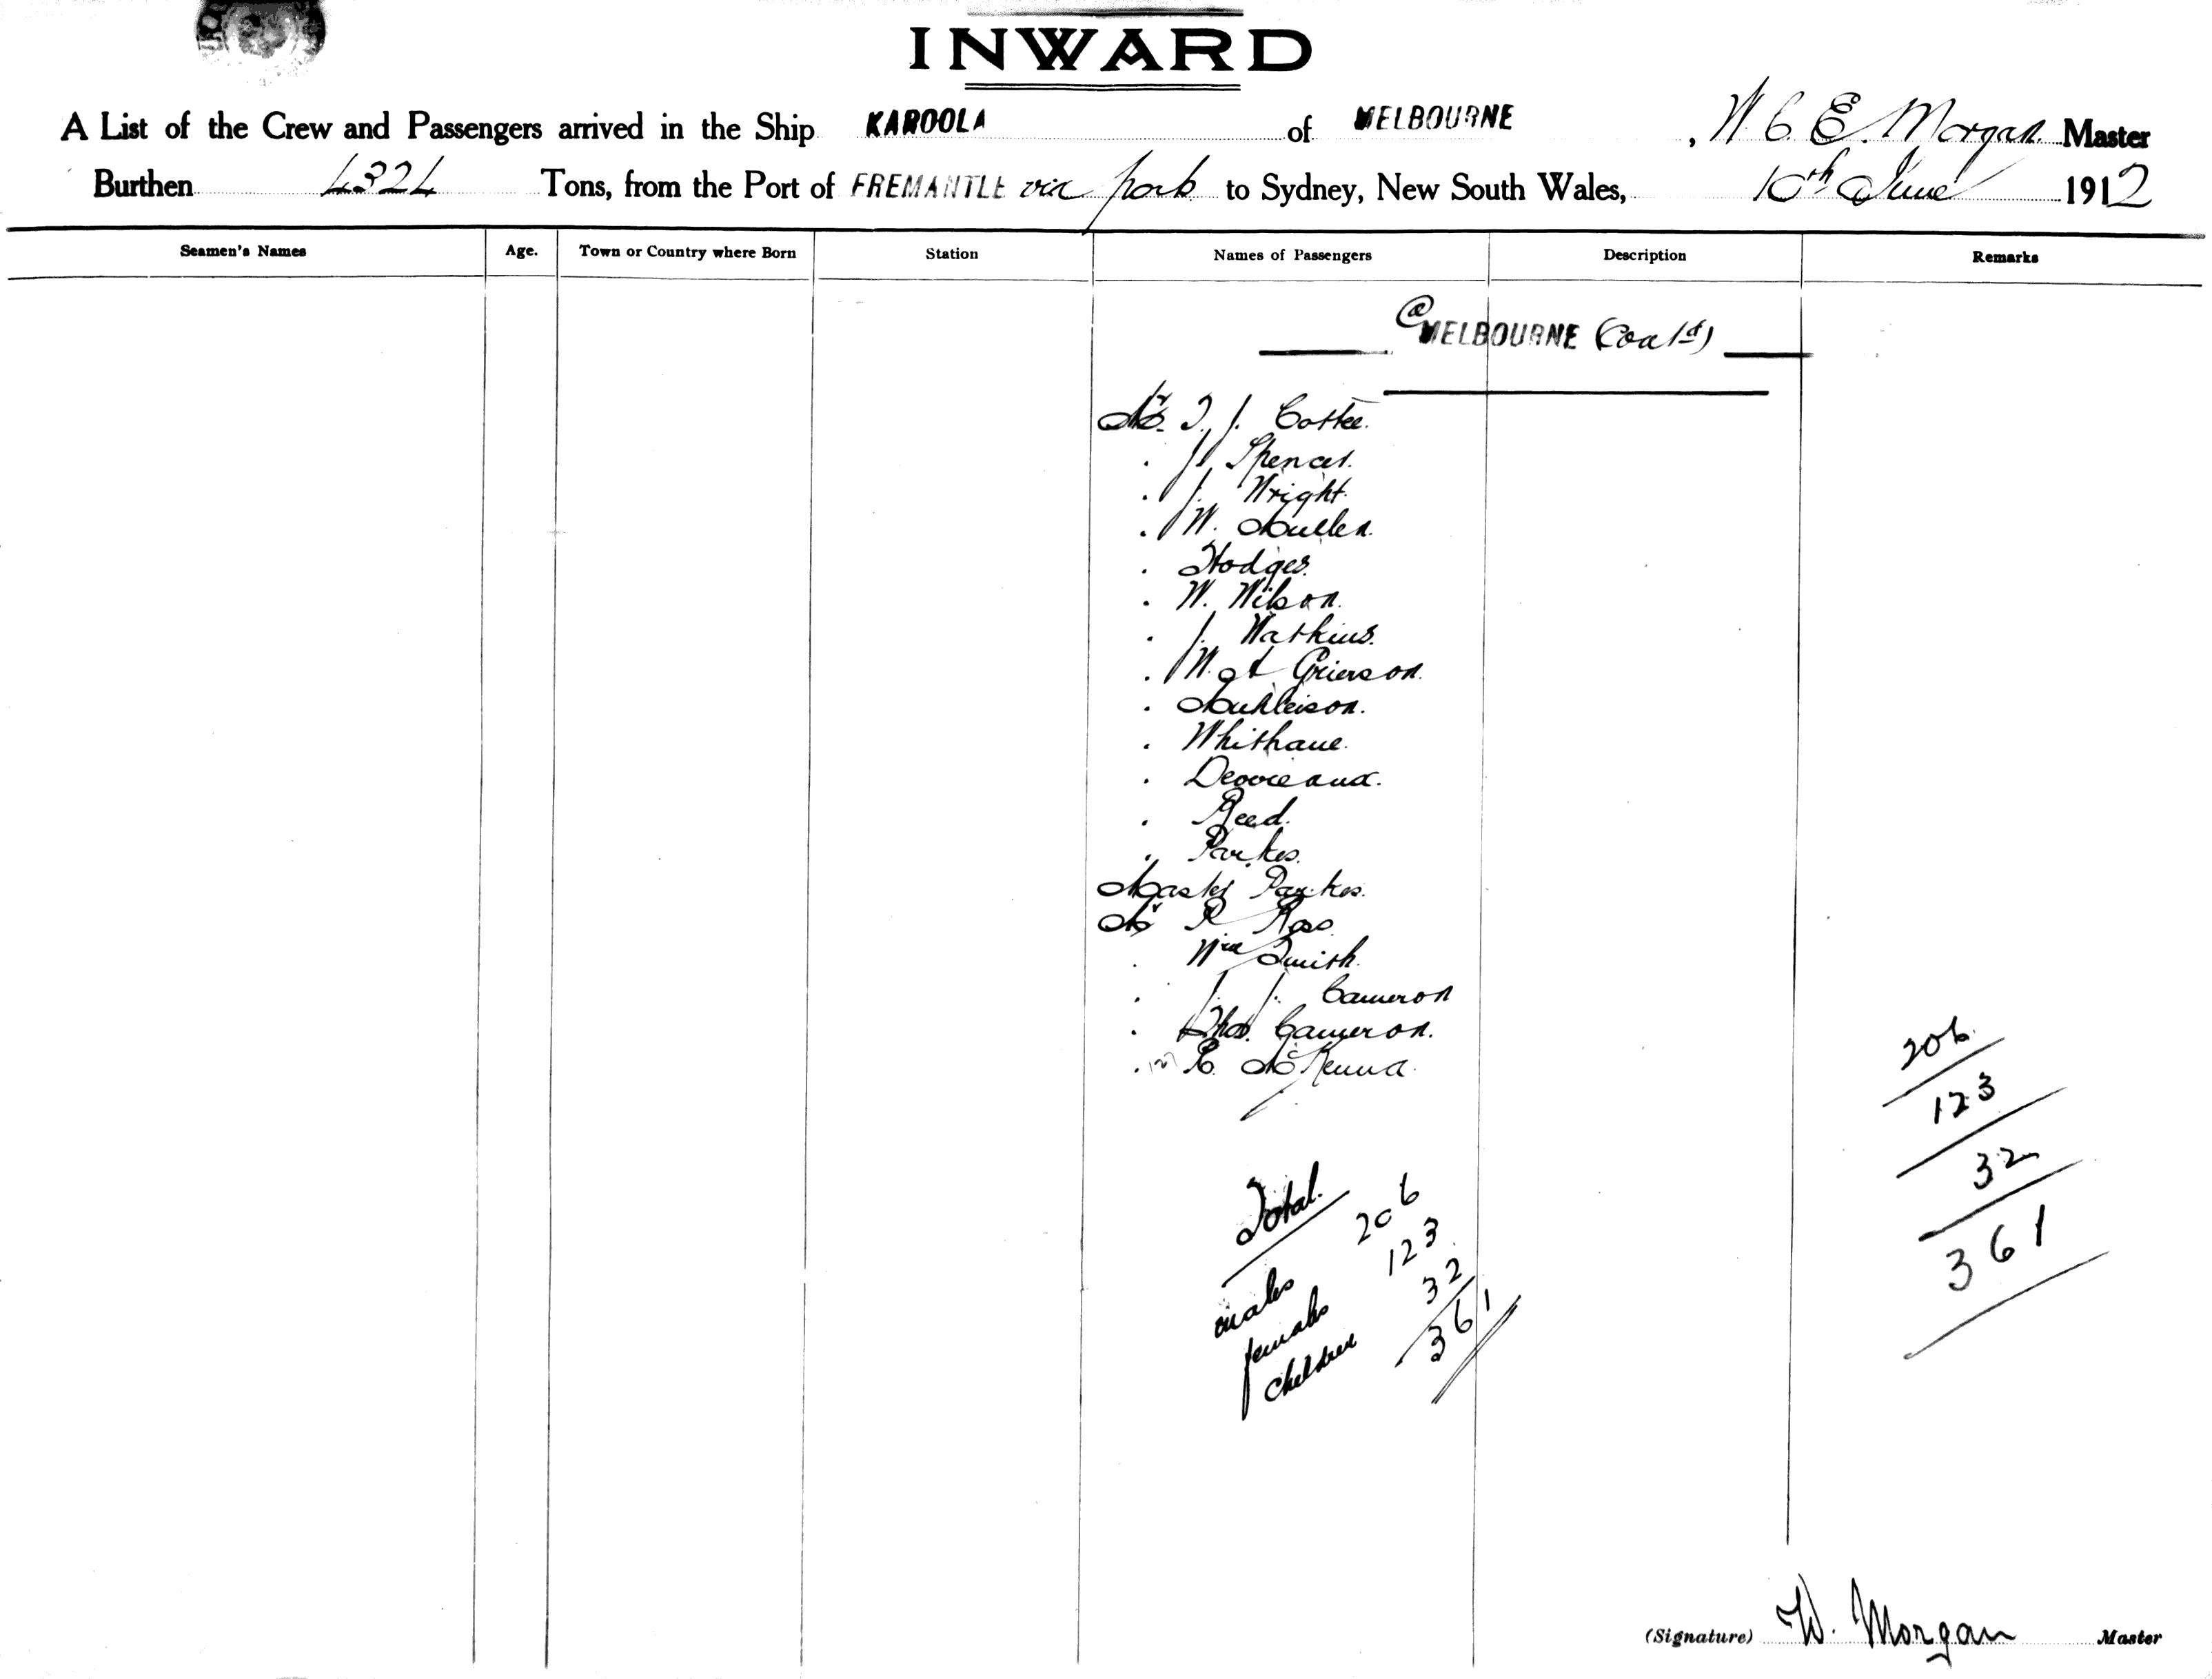 INWARD
A List of the Crew and Passengers arrived in the Ship KAROOLA of MELBOURNE, W C E. Morgan Master
Burthen 4324 Tons, from the Port of FREMANTLE via ports to Sydney, New South Wales, 10th June 1912
Seamen's Names Age. Town or Country where Born Station Names of Passengers Description Remarks
@ MELBOURNE (Contd)
Mr. T. J. Cottee.
. J. Spencer.
. J. Wright.
. W. Mullen.
. Hodges.
. W. Wilson.
. J. Watkins.
. W. A Grierson.
. Muhleison.
. Whithane.
. Devoreaux.
. Reed.
. Parkes.
Master Parkes.
Mr R Ross.
. Wm Smith.
. J. J. Cameron
. Thos. Cameron.
. R. McKenna.
Total.
males 206
females 123
children 32
361
206
123
32
361
(Signature) W. Morgan Master